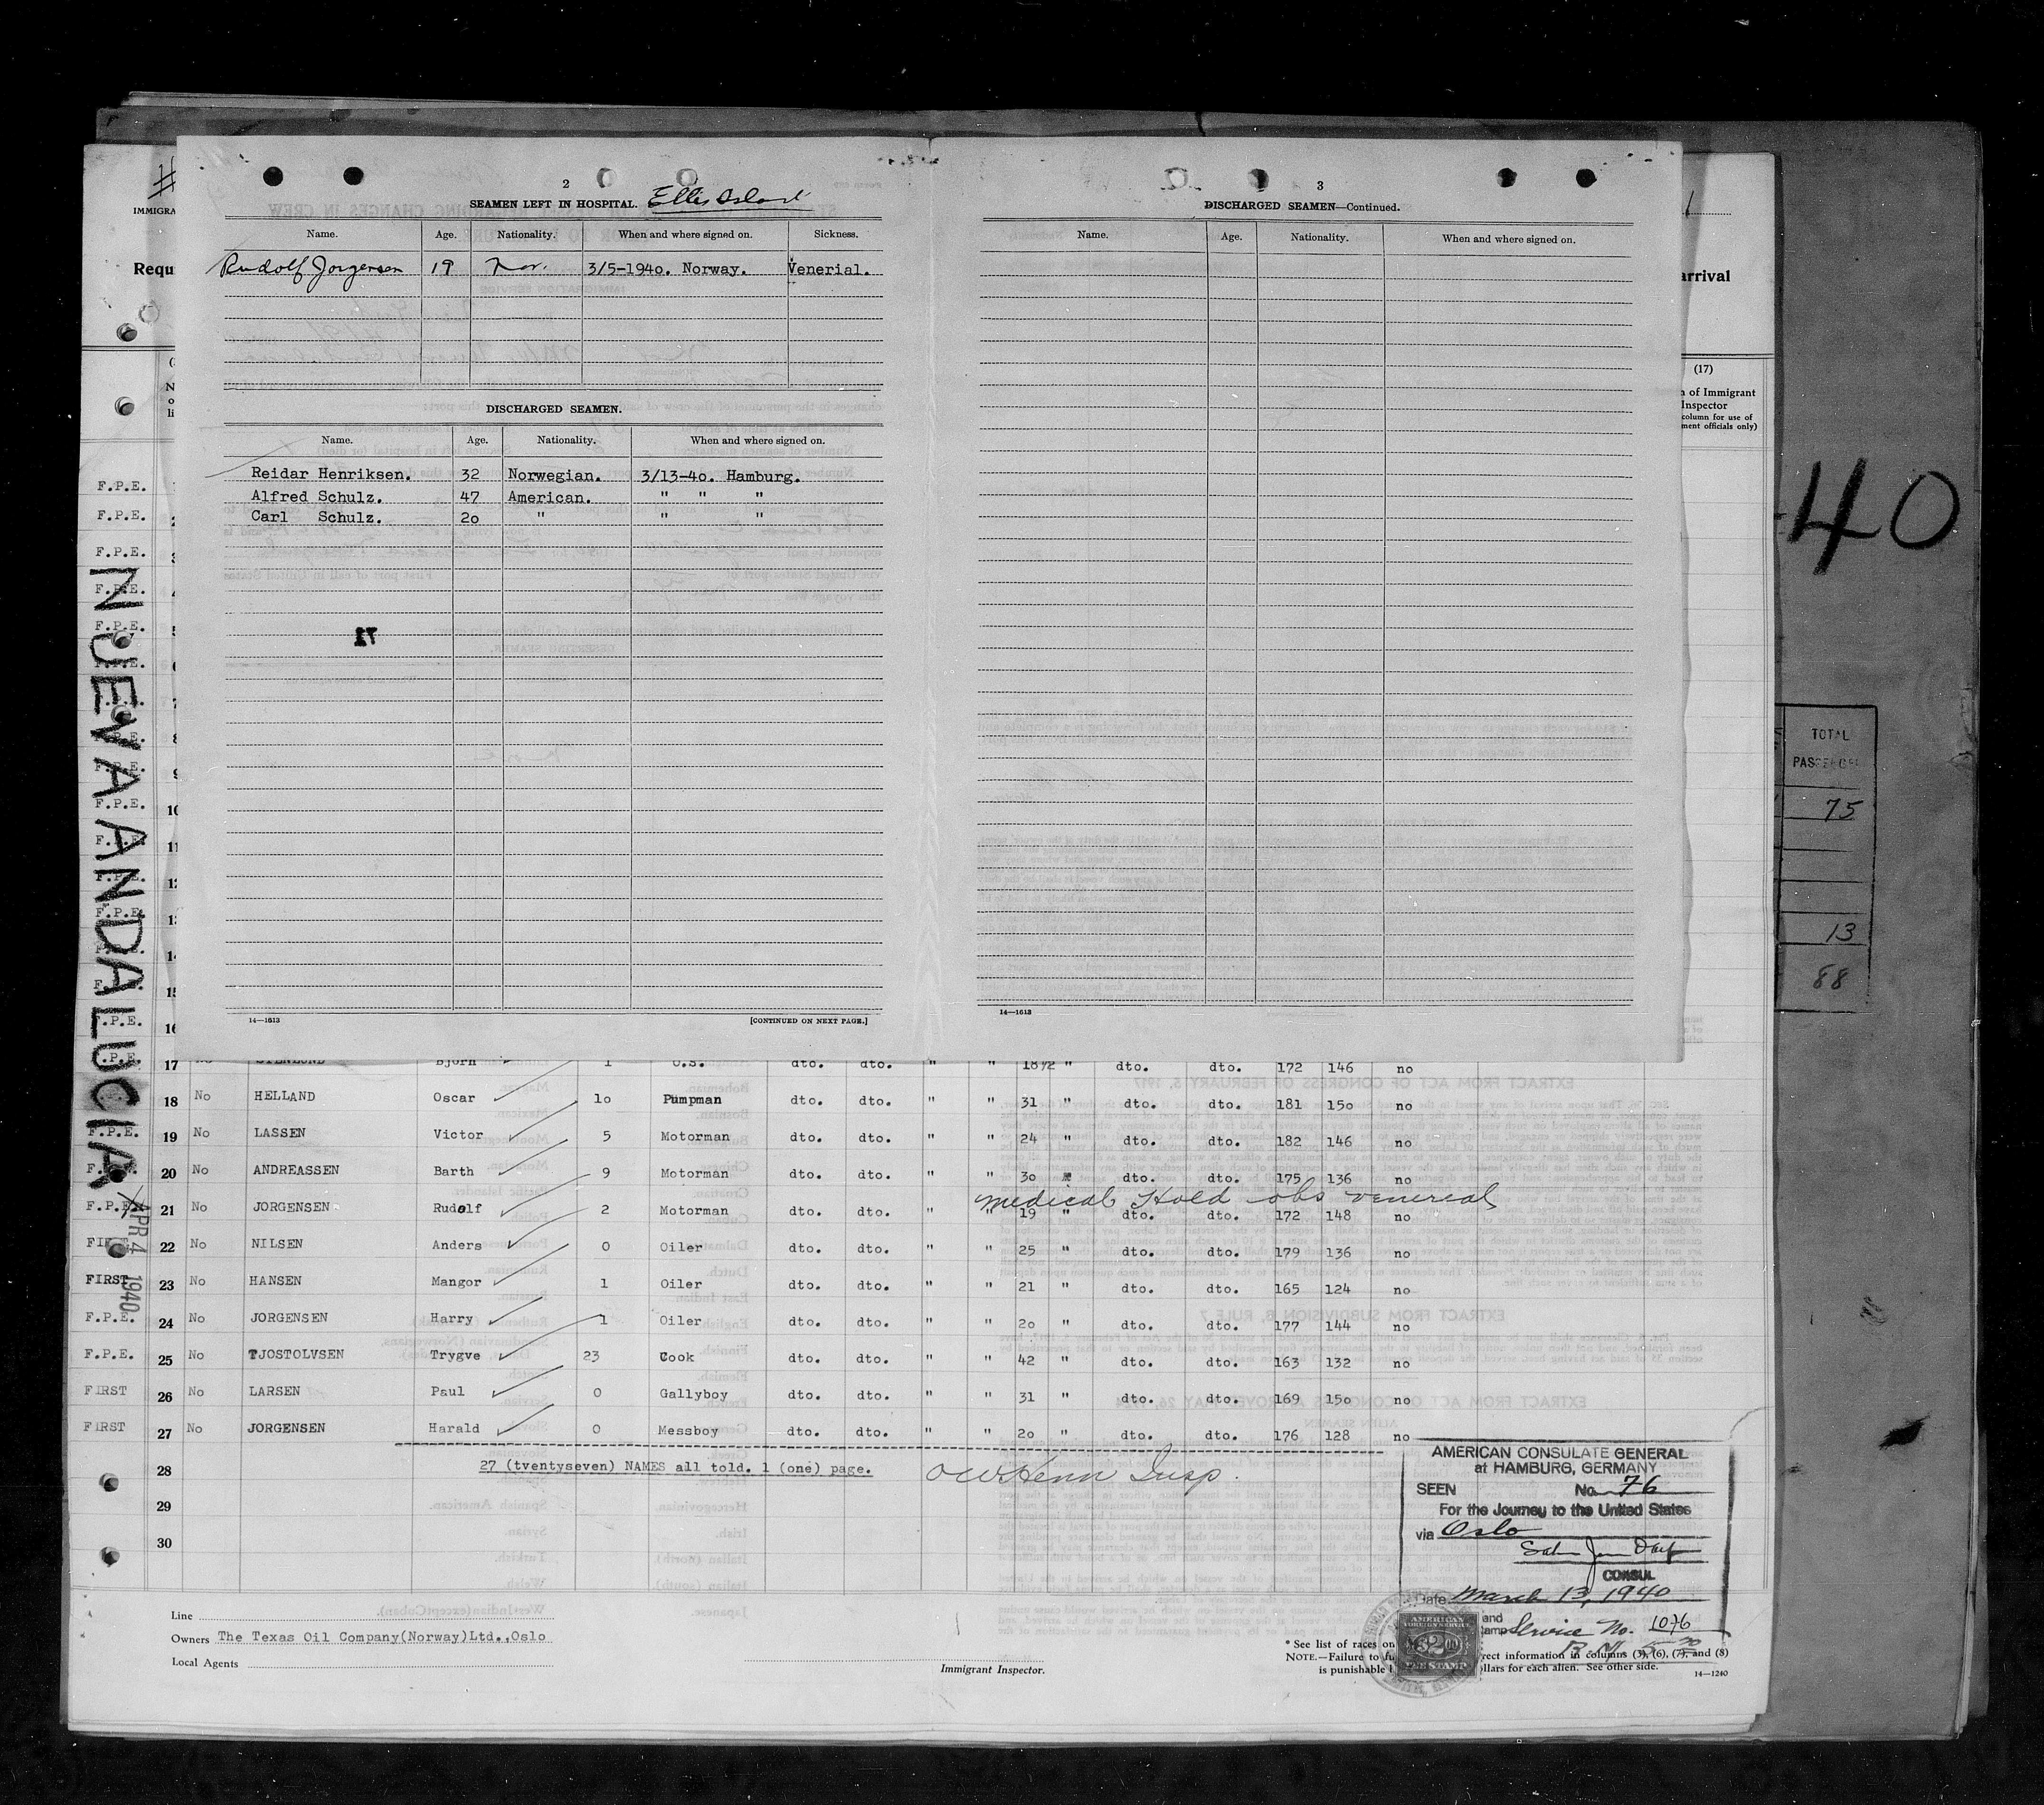 2
SEAMEN LEFT IN HOSPITAL. Ellis Island
Name. Age. Nationality. When and where signed on. Sickness.
Rudolf Jorgensen 19 Nor. 3/5-1940. Norway. Venerial.
DISCHARGED SEAMEN.
Name. Age. Nationality. When and where signed on.
Reidar Henriksen. 32 Norwegian. 3/13-40. Hamburg.
Alfred Schulz. 47 American. " " "
Carl Schulz. 20 " " "
14—1613
[CONTINUED ON NEXT PAGE.]
3
DISCHARGED SEAMEN—Continued.
Name. Age. Nationality. When and where signed on.
14—1613
#
IMMIGRA
Requ
arrival
(17)
n of Immigrant
Inspector
column for use of
ment officials only)
40
TOTAL
75
13
88
NUEVA ANDALUCIA
APR 4 1940
F.P.E.
F.P.E. 2
F.P.E. 3
F.P.E. 4
F.P.E. 5
F.P.E. 6
7
F.P.E. 8
F.P.E. 9
F.P.E. 10
F.P.E. 11
F.P.E. 12
F.P.E. 13
14
F.P.E. 15
F.P.E. 16
F.P.E. 17 Bjorn 1 O.S. dto. dto. " " 18½ " dto. dto. 172 146 no
18 No HELLAND Oscar 10 Pumpman dto. dto. " " 31 " dto. dto. 181 150 no
F.P.E. 19 No LASSEN Victor 5 Motorman dto. dto. " " 24 " dto. dto. 182 146 no
20 No ANDREASSEN Barth 9 Motorman dto. dto. " " 30 " dto. dto. 175 136 no
medical Hold obs venereal
F.P.E. 21 No JORGENSEN Rudolf 2 Motorman dto. dto. " " 19 " dto. dto. 172 148 no
FIRST 22 No NILSEN Anders 0 Oiler dto. dto. " " 25 " dto. dto. 179 136 no
FIRST 23 No HANSEN Mangor 1 Oiler dto. dto. " " 21 " dto. dto. 165 124 no
F.P.E. 24 No JORGENSEN Harry 1 Oiler dto. dto. " " 20 " dto. dto. 177 144 no
F.P.E. 25 No TJOSTOLVSEN Trygve 23 Cook dto. dto. " " 42 " dto. dto. 163 132 no
FIRST 26 No LARSEN Paul 0 Gallyboy dto. dto. " " 31 " dto. dto. 169 150 no
FIRST 27 No JORGENSEN Harald 0 Messboy dto. dto. " " 20 " dto. dto. 176 128 no
28 27 (tventyseven) NAMES all told. 1 (one) page. Insp.
29
30
AMERICAN CONSULATE GENERAL
at HAMBURG, GERMANY
SEEN No. 76
For the Journey to the United States
via Oslo
CONSUL
Date March 13, 1940
Service No. 1076
Line
Owners The Texas Oil Company(Norway)Ltd.,Oslo
Local Agents
Immigrant Inspector.
* See list of races on
NOTE.—Failure to fu rect information in columns (3), (6), (7), and (8)
is punishable llars for each alien. See other side.
14—1240